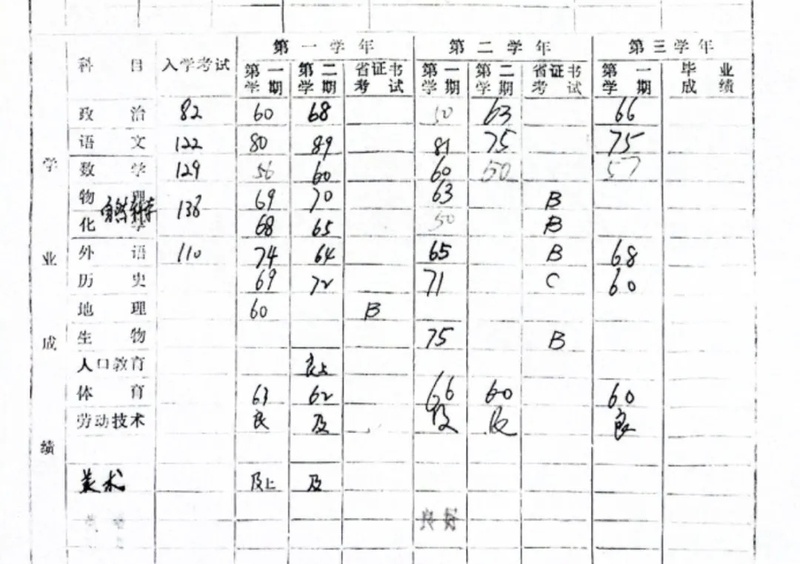 第一学年 第二学年 第三学年
科目 入学考试 第一学期 第二学期 省证书考试 第一学期 第二学期 省证书考试 第一学期 毕业成绩
学业成绩
政治 82 60 68 50 63 66
语文 122 80 89 81 75 75
数学 129 56 60 60 50 57
物理 138 69 70 63 B
自然科学
化学 68 65 50 B
外语 110 74 64 65 B 68
历史 69 72 71 C 60
地理 60 B
生物 75 B
人口教育 良上
体育 63 62 66 60 60
劳动技术 良 及 及 及 良
美术 及上 及
良好